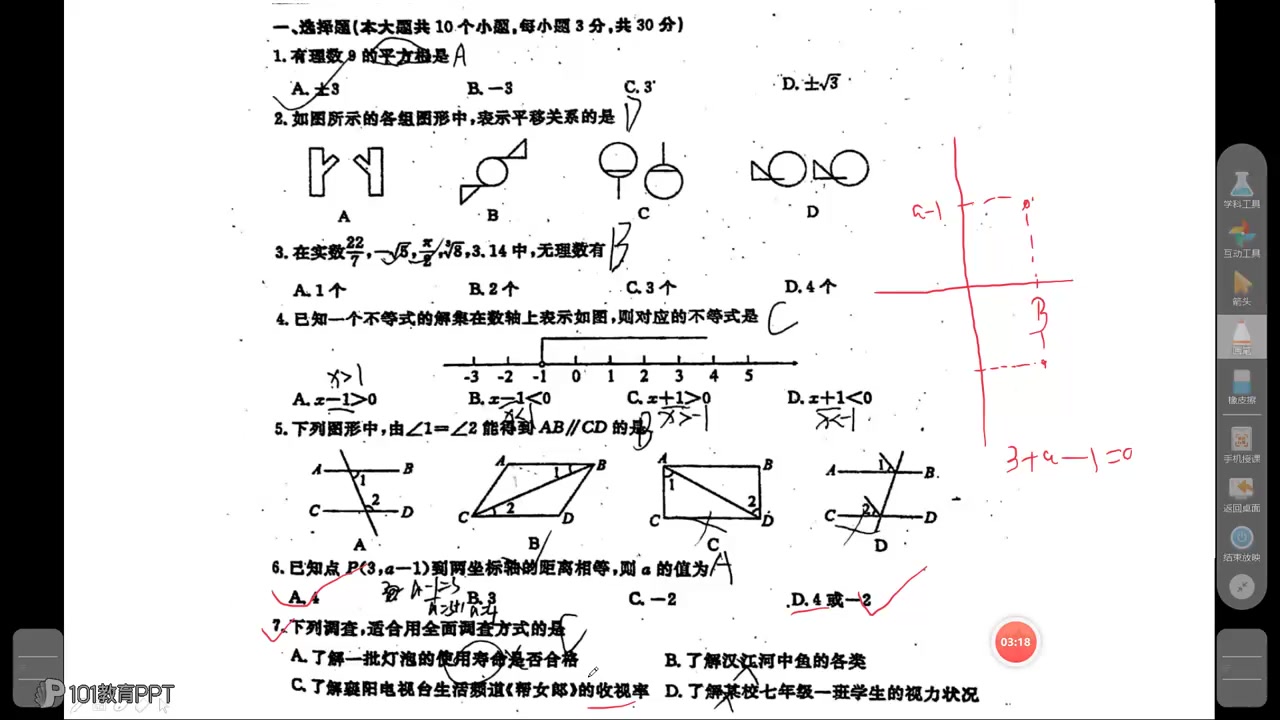 一、选择题(本大题共10个小题,每小题3分,共30分)
1.有理数9的平方根是 A
A.±3 B.-3 C.3 D.±√3
2.如图所示的各组图形中,表示平移关系的是 D
A B C D
3.在实数22/7,-√5,π/2,³√8,3.14中,无理数有 B
A.1个 B.2个 C.3个 D.4个
4.已知一个不等式的解集在数轴上表示如图,则对应的不等式是 C
-3 -2 -1 0 1 2 3 4 5
x>1
A.x-1>0 B.x-1<0 C.x+1>0 D.x+1<0
x<1 x>-1 x<-1
5.下列图形中,由∠1=∠2能得到AB∥CD的是 B
A B 1 C 2 D
A B 1 C 2 D
A B 1 2 C D
A 1 B C 2 D
A B C D
6.已知点P(3,a-1)到两坐标轴的距离相等,则a的值为 A
a-1=3
A.4 B.3 C.-2 D.4或-2
a=3+1 a=4
7.下列调查,适合用全面调查方式的是 C
A.了解一批灯泡的使用寿命是否合格 B.了解汉江河中鱼的各类
C.了解襄阳电视台生活频道《帮女郎》的收视率 D.了解某校七年级一班学生的视力状况
a-1
B
3+a-1=0
学科工具
互动工具
箭头
画笔
橡皮擦
手机授课
返回桌面
结束放映
03:18
101教育PPT